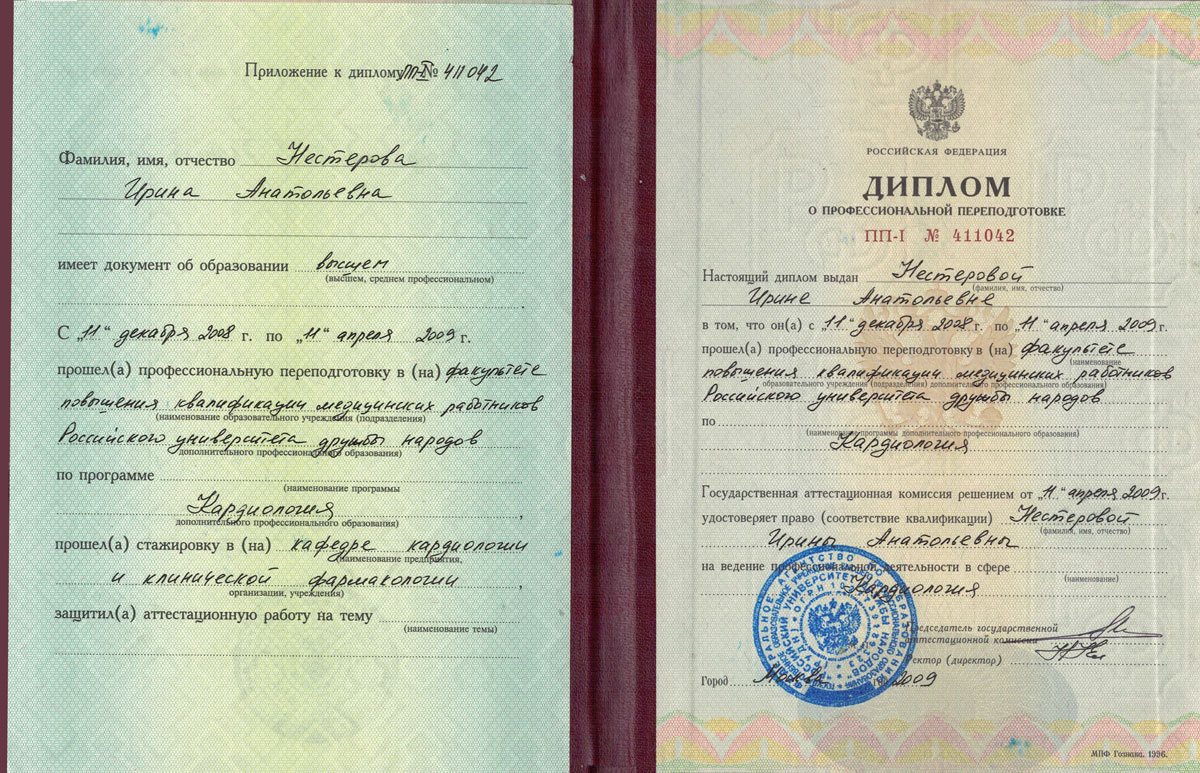 Приложение к диплому ПП-I № 411042
Фамилия, имя, отчество Нестерова
Ирина Анатольевна
имеет документ об образовании высшем
(высшем, среднем профессиональном)
С „11“ декабря 2008 г. по „11“ апреля 2009 г.
прошел(а) профессиональную переподготовку в (на) факультете
повышения квалификации медицинских работников
(наименование образовательного учреждения (подразделения)
Российского университета дружбы народов
дополнительного профессионального образования)
по программе
(наименование программы
Кардиология
дополнительного профессионального образования)
прошел(а) стажировку в (на) кафедре кардиологии
(наименование предприятия,
и клинической фармакологии
организации, учреждения)
защитил(а) аттестационную работу на тему
(наименование темы)
РОССИЙСКАЯ ФЕДЕРАЦИЯ
ДИПЛОМ
О ПРОФЕССИОНАЛЬНОЙ ПЕРЕПОДГОТОВКЕ
ПП-I № 411042
Настоящий диплом выдан Нестеровой
(фамилия, имя, отчество)
Ирине Анатольевне
в том, что он(а) с „11“ декабря 2008 г. по „11“ апреля 2009 г.
прошел(а) профессиональную переподготовку в (на) факультете
(наименование
повышения квалификации медицинских работников
образовательного учреждения (подразделения) дополнительного профессионального образования)
Российского университета дружбы народов
по
(наименование программы дополнительного профессионального образования)
Кардиология
Государственная аттестационная комиссия решением от „11“ апреля 2009 г.
удостоверяет право (соответствие квалификации) Нестеровой
(фамилия, имя, отчество)
Ирины Анатольевны
на ведение профессиональной деятельности в сфере
(наименование)
Кардиология
Председатель государственной
аттестационной комиссии
Ректор (директор)
Город Москва 2009
МПФ Гознака. 1996.